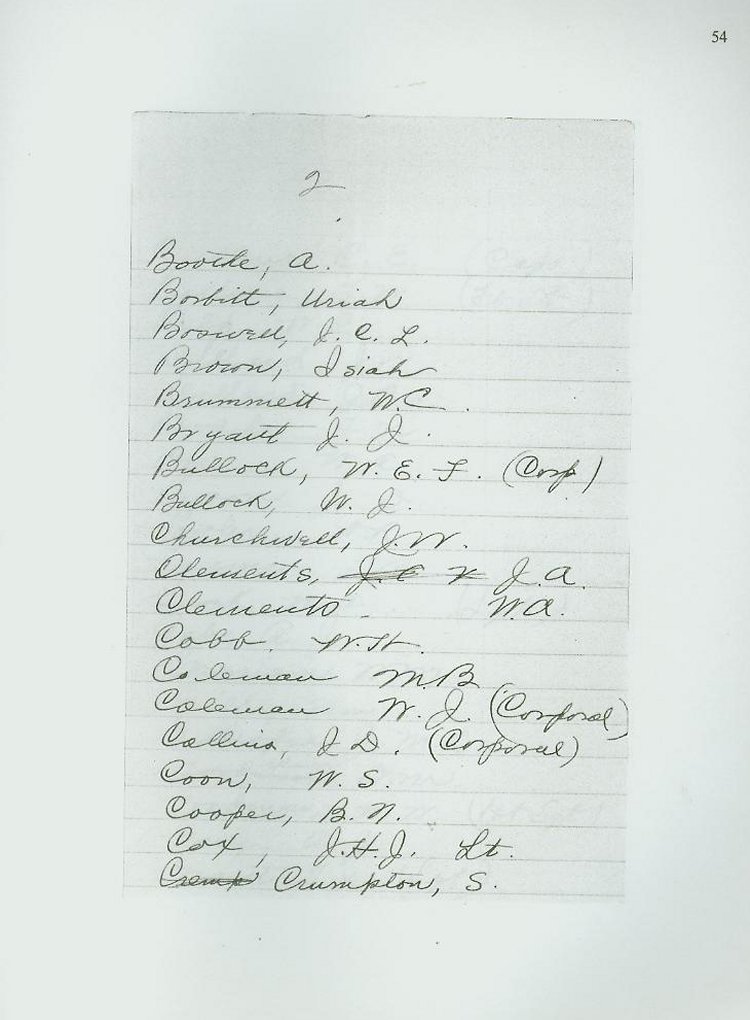 54
2
Boothe, A.
Bosbitt, Uriah
Boswell, J. C. L.
Brown, Isiah
Brummett, W.C.
Bryant J. J.
Bullock, W. E. F. (Corp)
Bullock, W. J.
Churchwell, J.W.
Clements, J.A.
Clements W.A.
Cobb. W.H.
Coleman M.B
Coleman W. J. (Corporal)
Collins, J D. (Corporal)
Coon, W. S.
Cooper, B. N.
Cox, J.H.J. Lt.
Crump Crumpton, S.